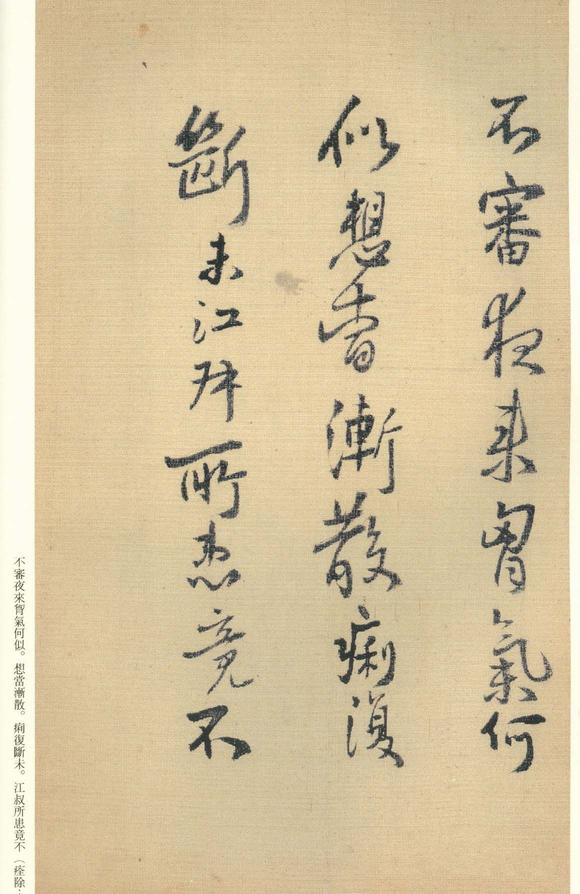 不審夜來胷氣何
似想當漸散痢復
斷未江叔所患竟不
不審夜來胷氣何似。想當漸散。痢復斷未。江叔所患竟不（痊除